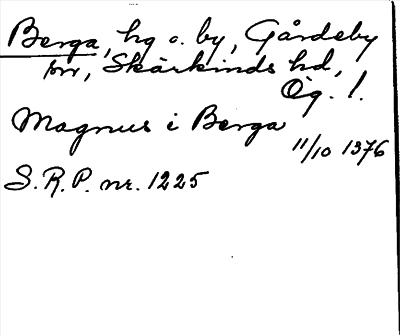 Berga, hg o. by, Gårdeby
sn, Skärkinds hd,
Ög. l.
Magnus i Berga
11/10 1376
S.R.P. nr. 1225